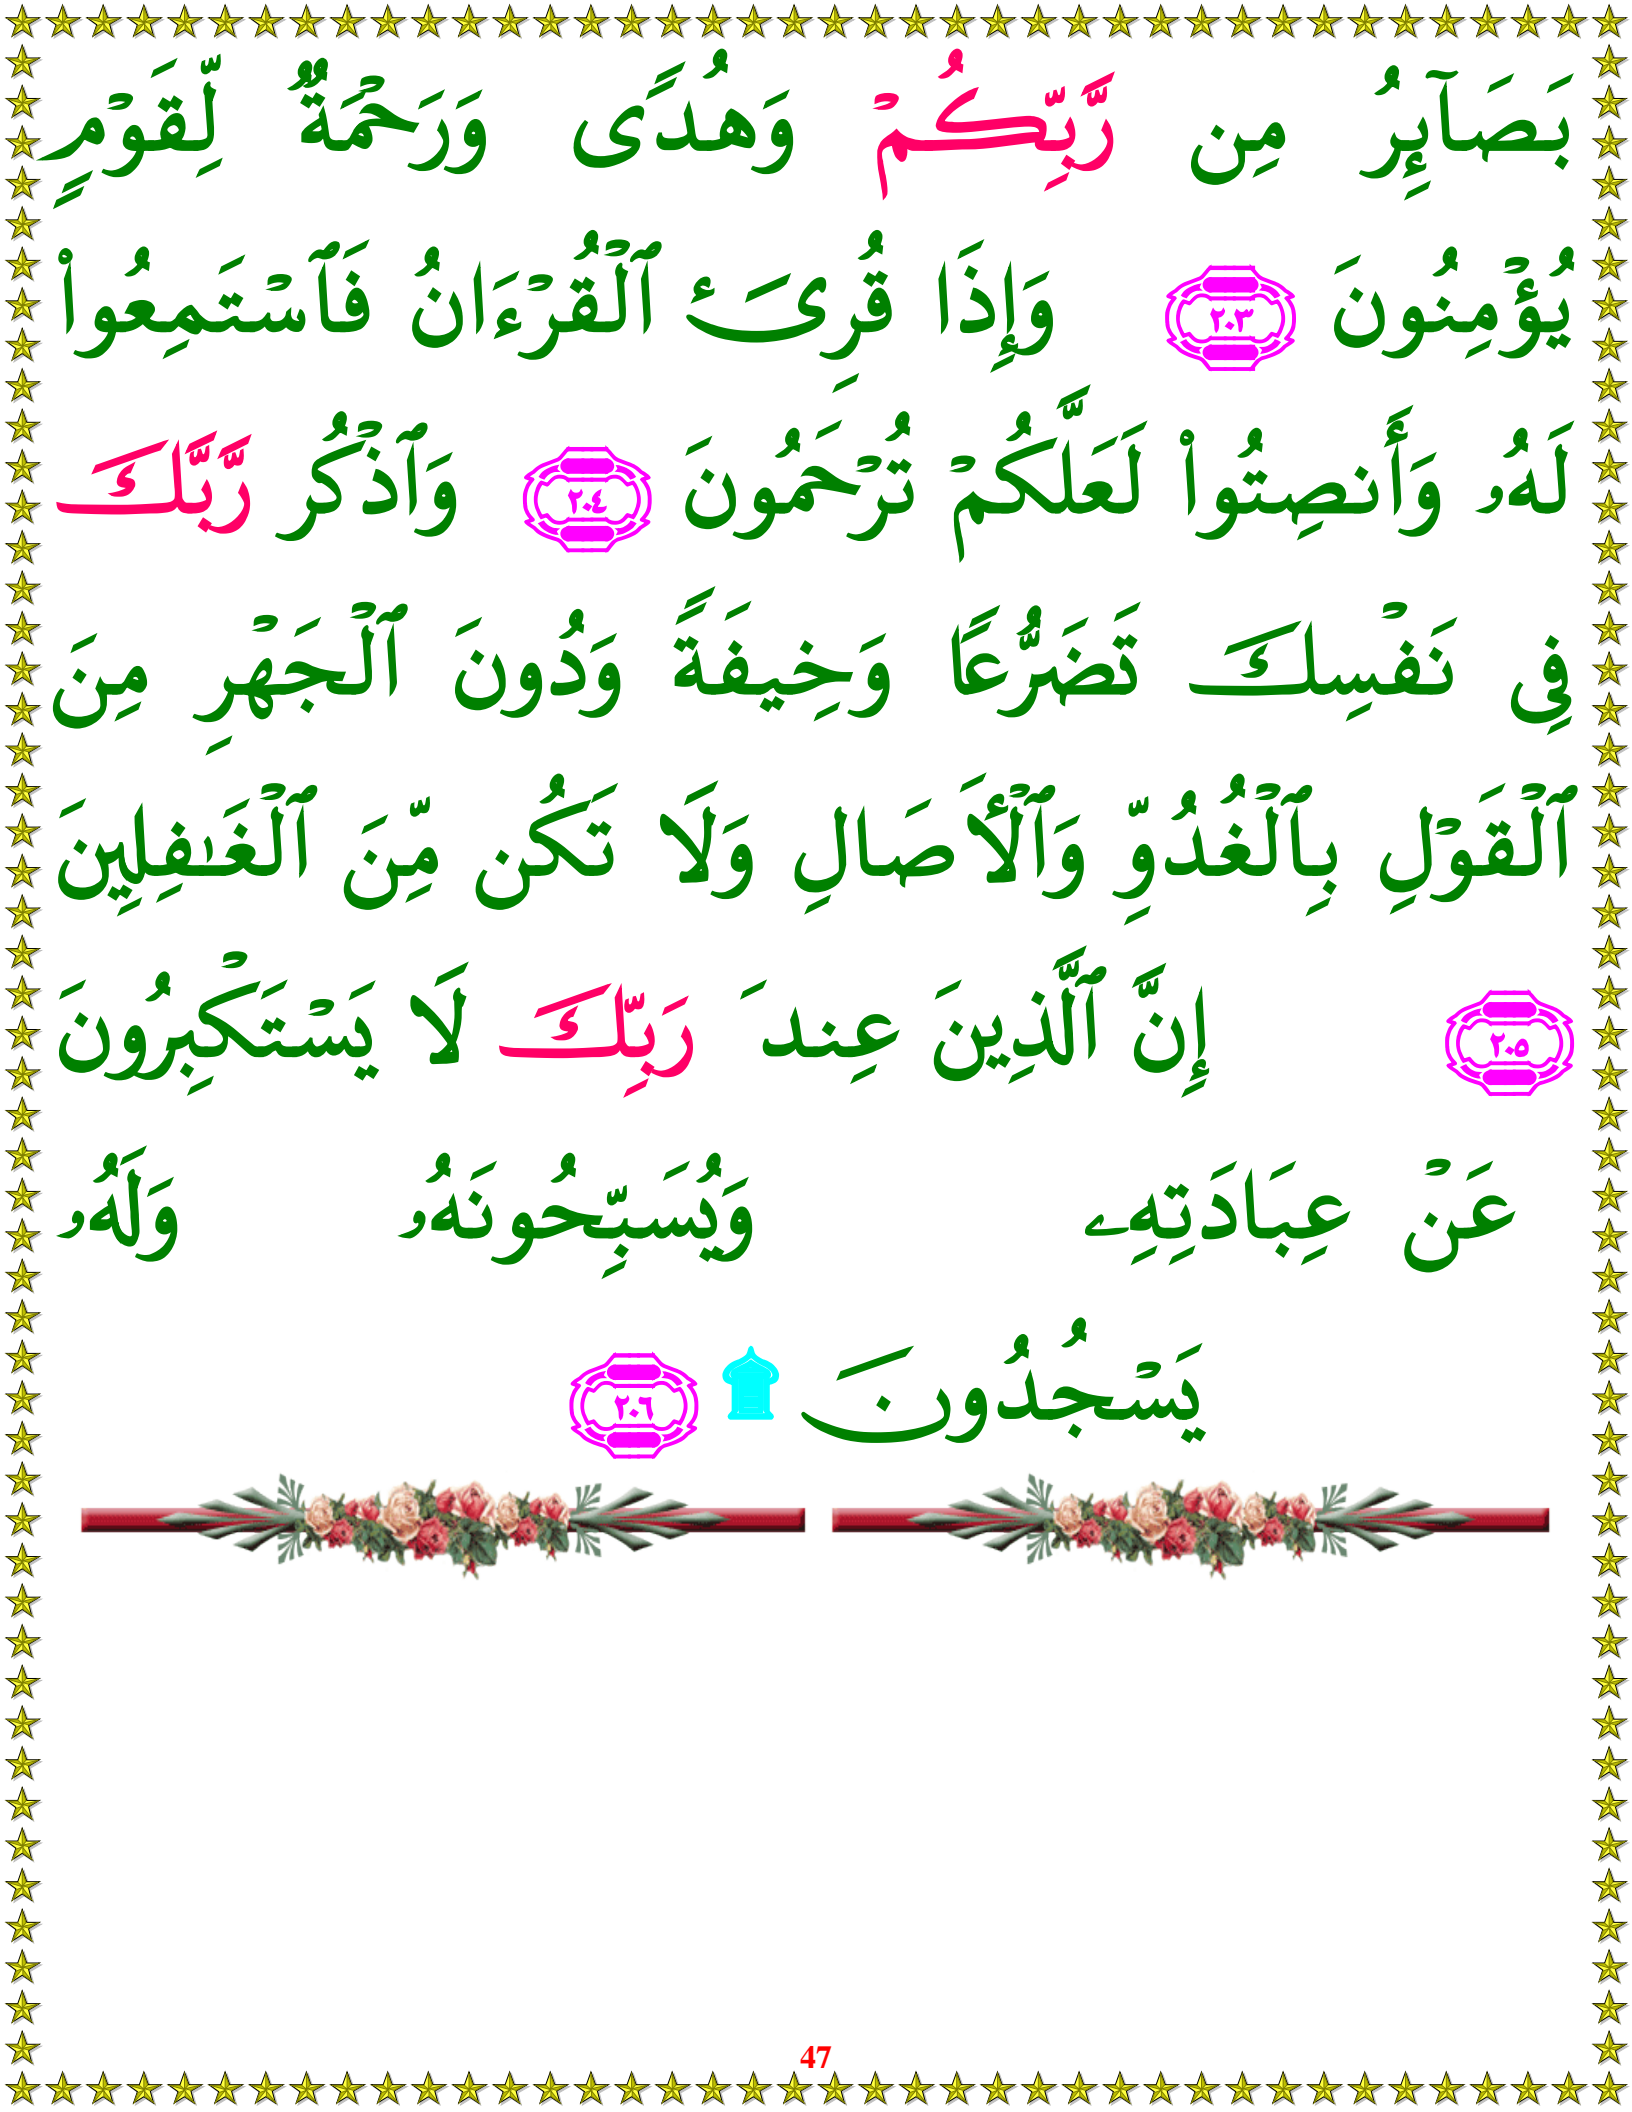 بَصَآئِرُ مِن رَّبِّكُمْ وَهُدًى وَرَحْمَةٌ لِّقَوْمٍ
يُؤْمِنُونَ ٢٠٣ وَإِذَا قُرِىَٔ ٱلْقُرْءَانُ فَٱسْتَمِعُوا۟
لَهُۥ وَأَنصِتُوا۟ لَعَلَّكُمْ تُرْحَمُونَ ٢٠٤ وَٱذْكُر رَّبَّكَ
فِى نَفْسِكَ تَضَرُّعًا وَخِيفَةً وَدُونَ ٱلْجَهْرِ مِنَ
ٱلْقَوْلِ بِٱلْغُدُوِّ وَٱلْأَصَالِ وَلَا تَكُن مِّنَ ٱلْغَـٰفِلِينَ
٢٠٥ إِنَّ ٱلَّذِينَ عِندَ رَبِّكَ لَا يَسْتَكْبِرُونَ
عَنْ عِبَادَتِهِۦ وَيُسَبِّحُونَهُۥ وَلَهُۥ
يَسْجُدُونَ ۩ ٢٠٦
47